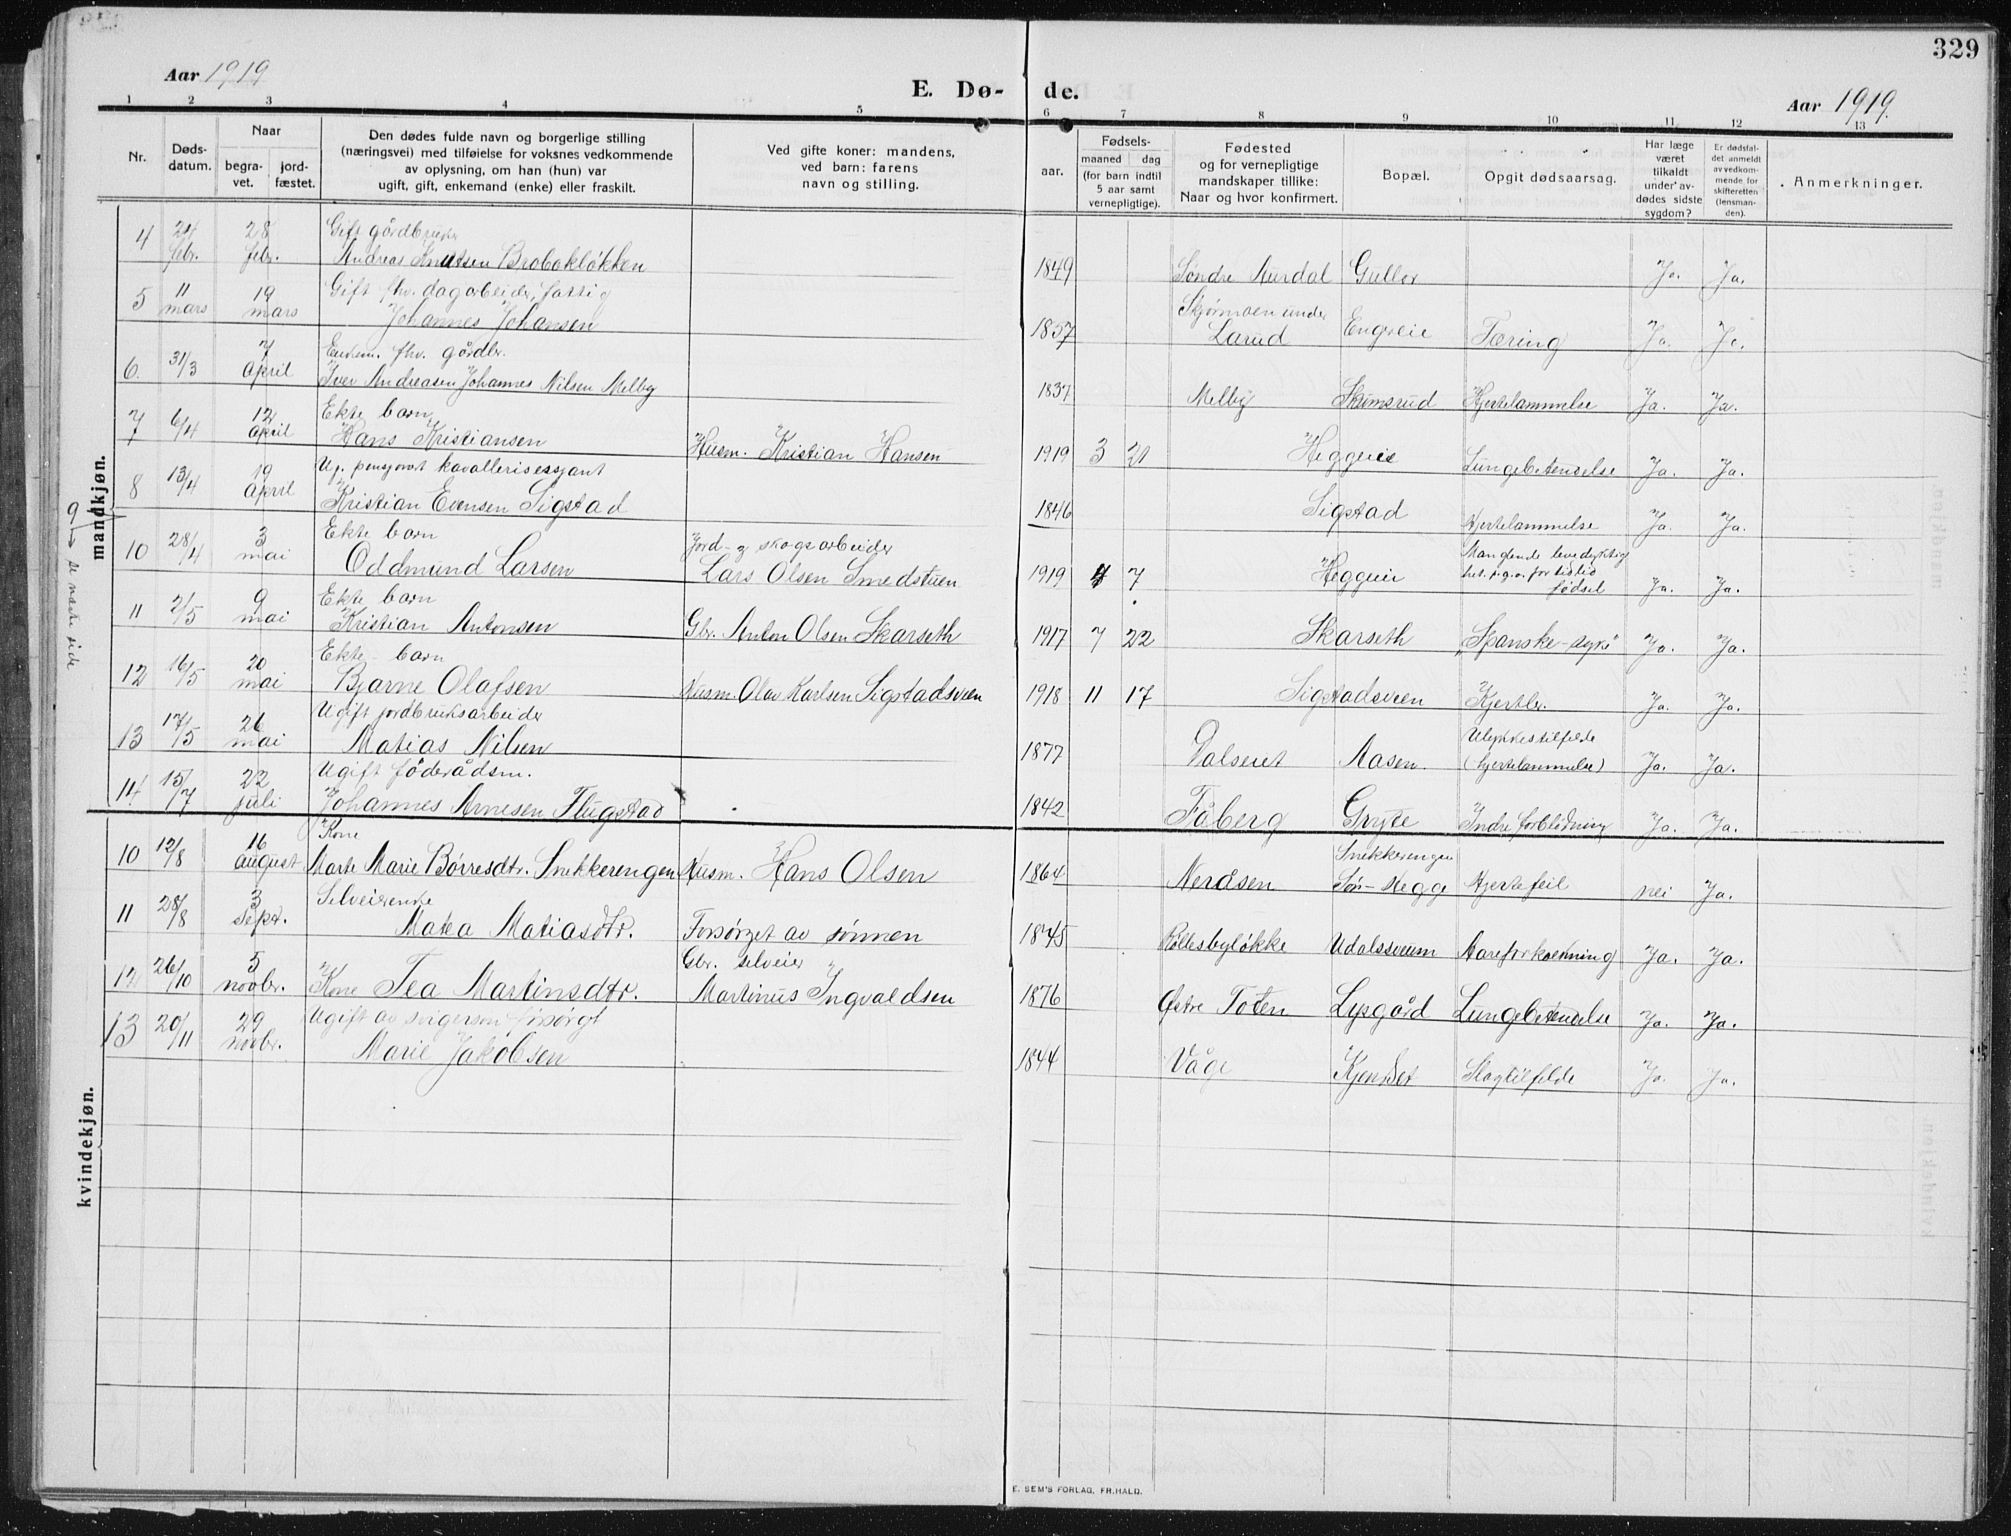 329
Aar 1919
E. Dø- de.
Aar 1919.
1 2 3 4 5 6 7 8 9 10 11 12 13
Nr.
Døds-
datum.
Naar
begra-
vet.
jord-
fæstet.
Den dødes fulde navn og borgerlige stilling
(næringsvei) med tilføielse for voksnes vedkommende
av oplysning, om han (hun) var
ugift, gift, enkemand (enke) eller fraskilt.
Ved gifte koner: mandens,
ved barn: farens
navn og stilling.
aar.
Fødsels-
maaned dag
(for barn indtil
5 aar samt
vernepligtige).
Fødested
og for vernepligtige
mandskaper tillike:
Naar og hvor konfirmert.
Bopæl.
Opgit dødsaarsag.
Har læge
været
tilkaldt
under av-
dødes sidste
sygdom?
Er dødsfal-
det anmeldt
av vedkom-
mende for
skifteretten
(lensman-
den).
Anmerkninger.
mandkjøn.
9 → se næste side
4 24 febr. 28 febr. Gift gårdbruker
Andreas Knutsen Brobakløkken 1849 Søndre Aurdal Gullor Ja. Ja.
5 11 mars 19 mars Gift fhv. dagarbeider, fattig
Johannes Johansen 1857 Skjørmoen under Larud Engveie Tæring Ja. Ja.
6. 31/3 7 April Enkem. fhv. gårdbr.
Iver Andreasen Johannes Nilsen Melby 1837 Melby Skumsrud Hjertelammelse Ja. Ja.
7 6/4 12 April Ekte barn
Hans Kristiansen Husm. Kristian Hansen 1919 3 21 Heggeie Lungebetendelse Ja. Ja.
8 13/4 19 April Ug. pensjonert kavallerisersjant
Kristian Evensen Sigstad 1846 Sigstad Hjertelammelse Ja. Ja.
10 28/4 3 mai Ekte barn
Oddmund Larsen Jord- og skogsarbeider
Lars Olsen Smedstuen 1919 4 7 Heggeie Manglende levedyktig
het p.g.a. for tidlig
fødsel Ja. Ja.
11 2/5 9 mai Ekte barn
Kristian Antonsen Gbr. Anton Olsen Skarseth 1917 7 22 Skarseth "Spanske-syke" Ja. Ja.
12 16/5 20 mai Ekte barn
Bjarne Olafsen Husm. Olav Karlsen Sigstadsveen 1918 11 17 Sigstadsveen Kjertler. Ja. Ja.
13 17/5 26 mai Ugift jordbruksarbeider
Matias Nilsen 1877 Dalseiet Aasen Ulykkestilfelde
(hjertelammelse) Ja. Ja.
14 15/7 22 juli Ugift føderådsm.
Johannes Arnesen Flugstad 1842 Fåberg Gryte Indre forblødning Ja. Ja.
kvindekjøn.
10 12/8 16 august Kone
Marte Marie Børresdtr. Snekkerengen Husm. Hans Olsen 1864 Nerdsen Snekkerengen
Søn-Hegge Hjertefeil nei Ja.
11 28/8 3 Sept. Selveierenke
Matea Matiasdtr. Forsørget av sønnen 1845 Rollesbyløkke Udalssveum Aareforkalkning Ja. Ja.
12 26/10 5 novbr. Kone Tea Martinsdtr. Gbr. selveier
Martinus Ingvaldsen 1876 Østre Toten Lysgård Lungebetendelse Ja. Ja.
13 20/11 29 novbr. Ugift av svigersøn forsørgt
Marie Jakobsen 1844 Våge Kjendset Slagtilfelde Ja. Ja.
E. SEM'S FORLAG, FR.HALD.